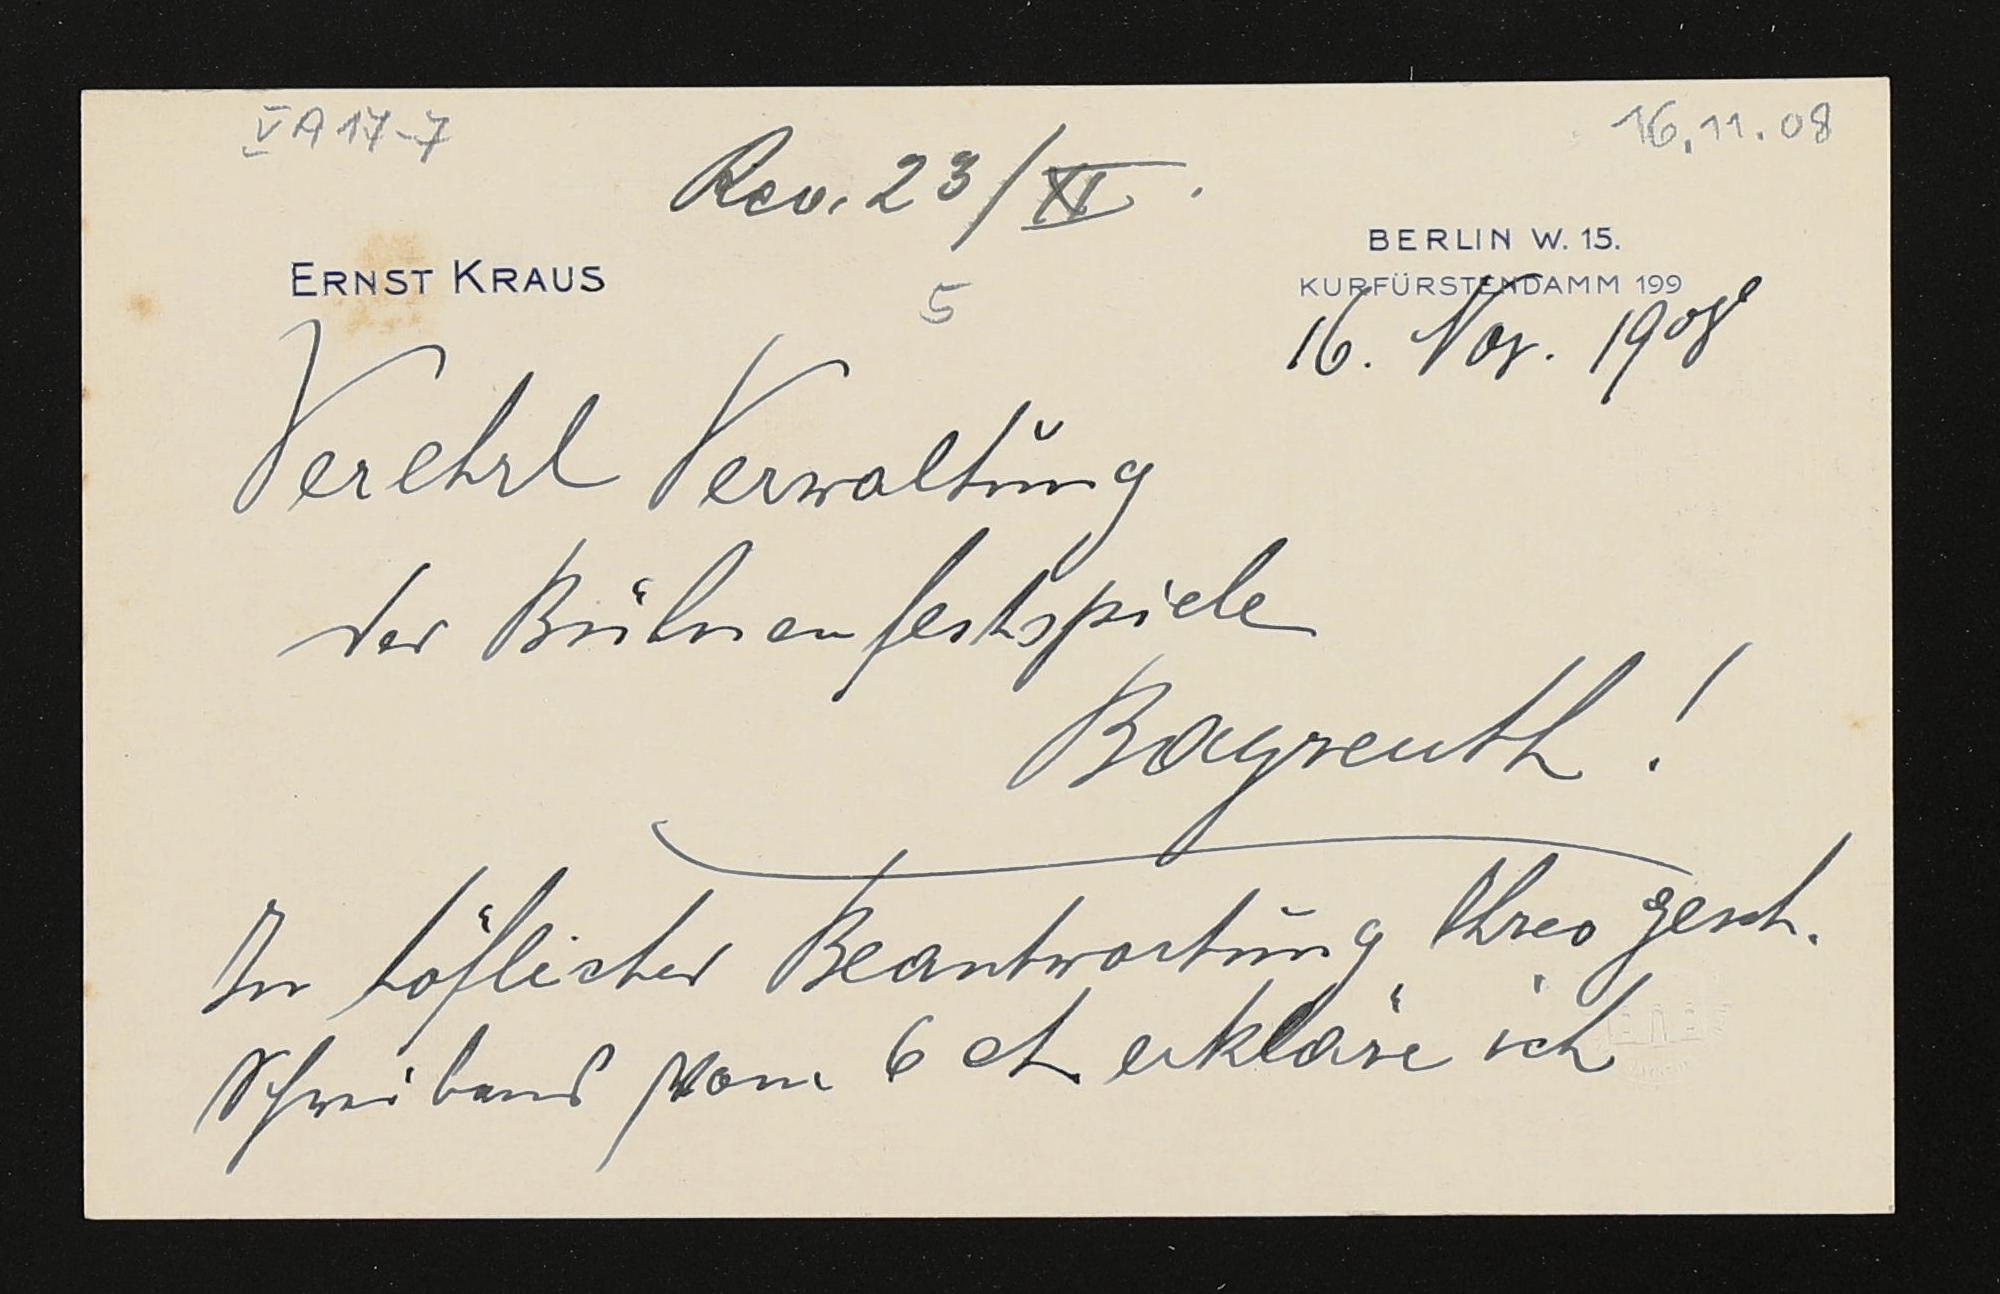 V A 17-7
16.11.08
Rev. 23/XI.
ERNST KRAUS
BERLIN W. 15.
KURFÜRSTENDAMM 199
5
16. Nov. 1908
Verehrl Verwaltung
der Bühnenfestspiele
Bayreuth!
In höflicher Beantwortung Ihres gesch.
Schreibens vom 6 ct. erkläre ich